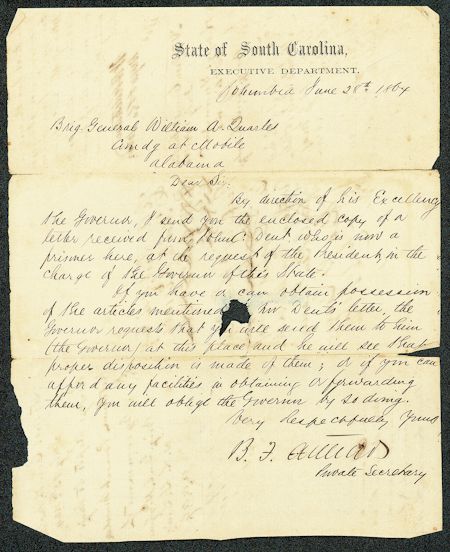 State of South Carolina,
EXECUTIVE DEPARTMENT.
Columbia June 28th 1864
Brig. General William A. Quarles
Comdg at Mobile
Alabama
Dear Sir.
By direction of his Excellency
the Governor, I send you the enclosed copy of a
letter received from Dent, who is now a
prisoner here, at the request of the President, in the
charge of the Governor of this State.
If you have or can obtain possession
of the articles mentioned in Mr Dent's letter, the
Governor requests that you will send them to him
(the Governor) at this place and he will see that
proper disposition is made of them; or if you can
afford any facilities in obtaining or forwarding
them, you will oblige the Governor by so doing.
Very Respectfully Yours
B. F.
Private Secretary